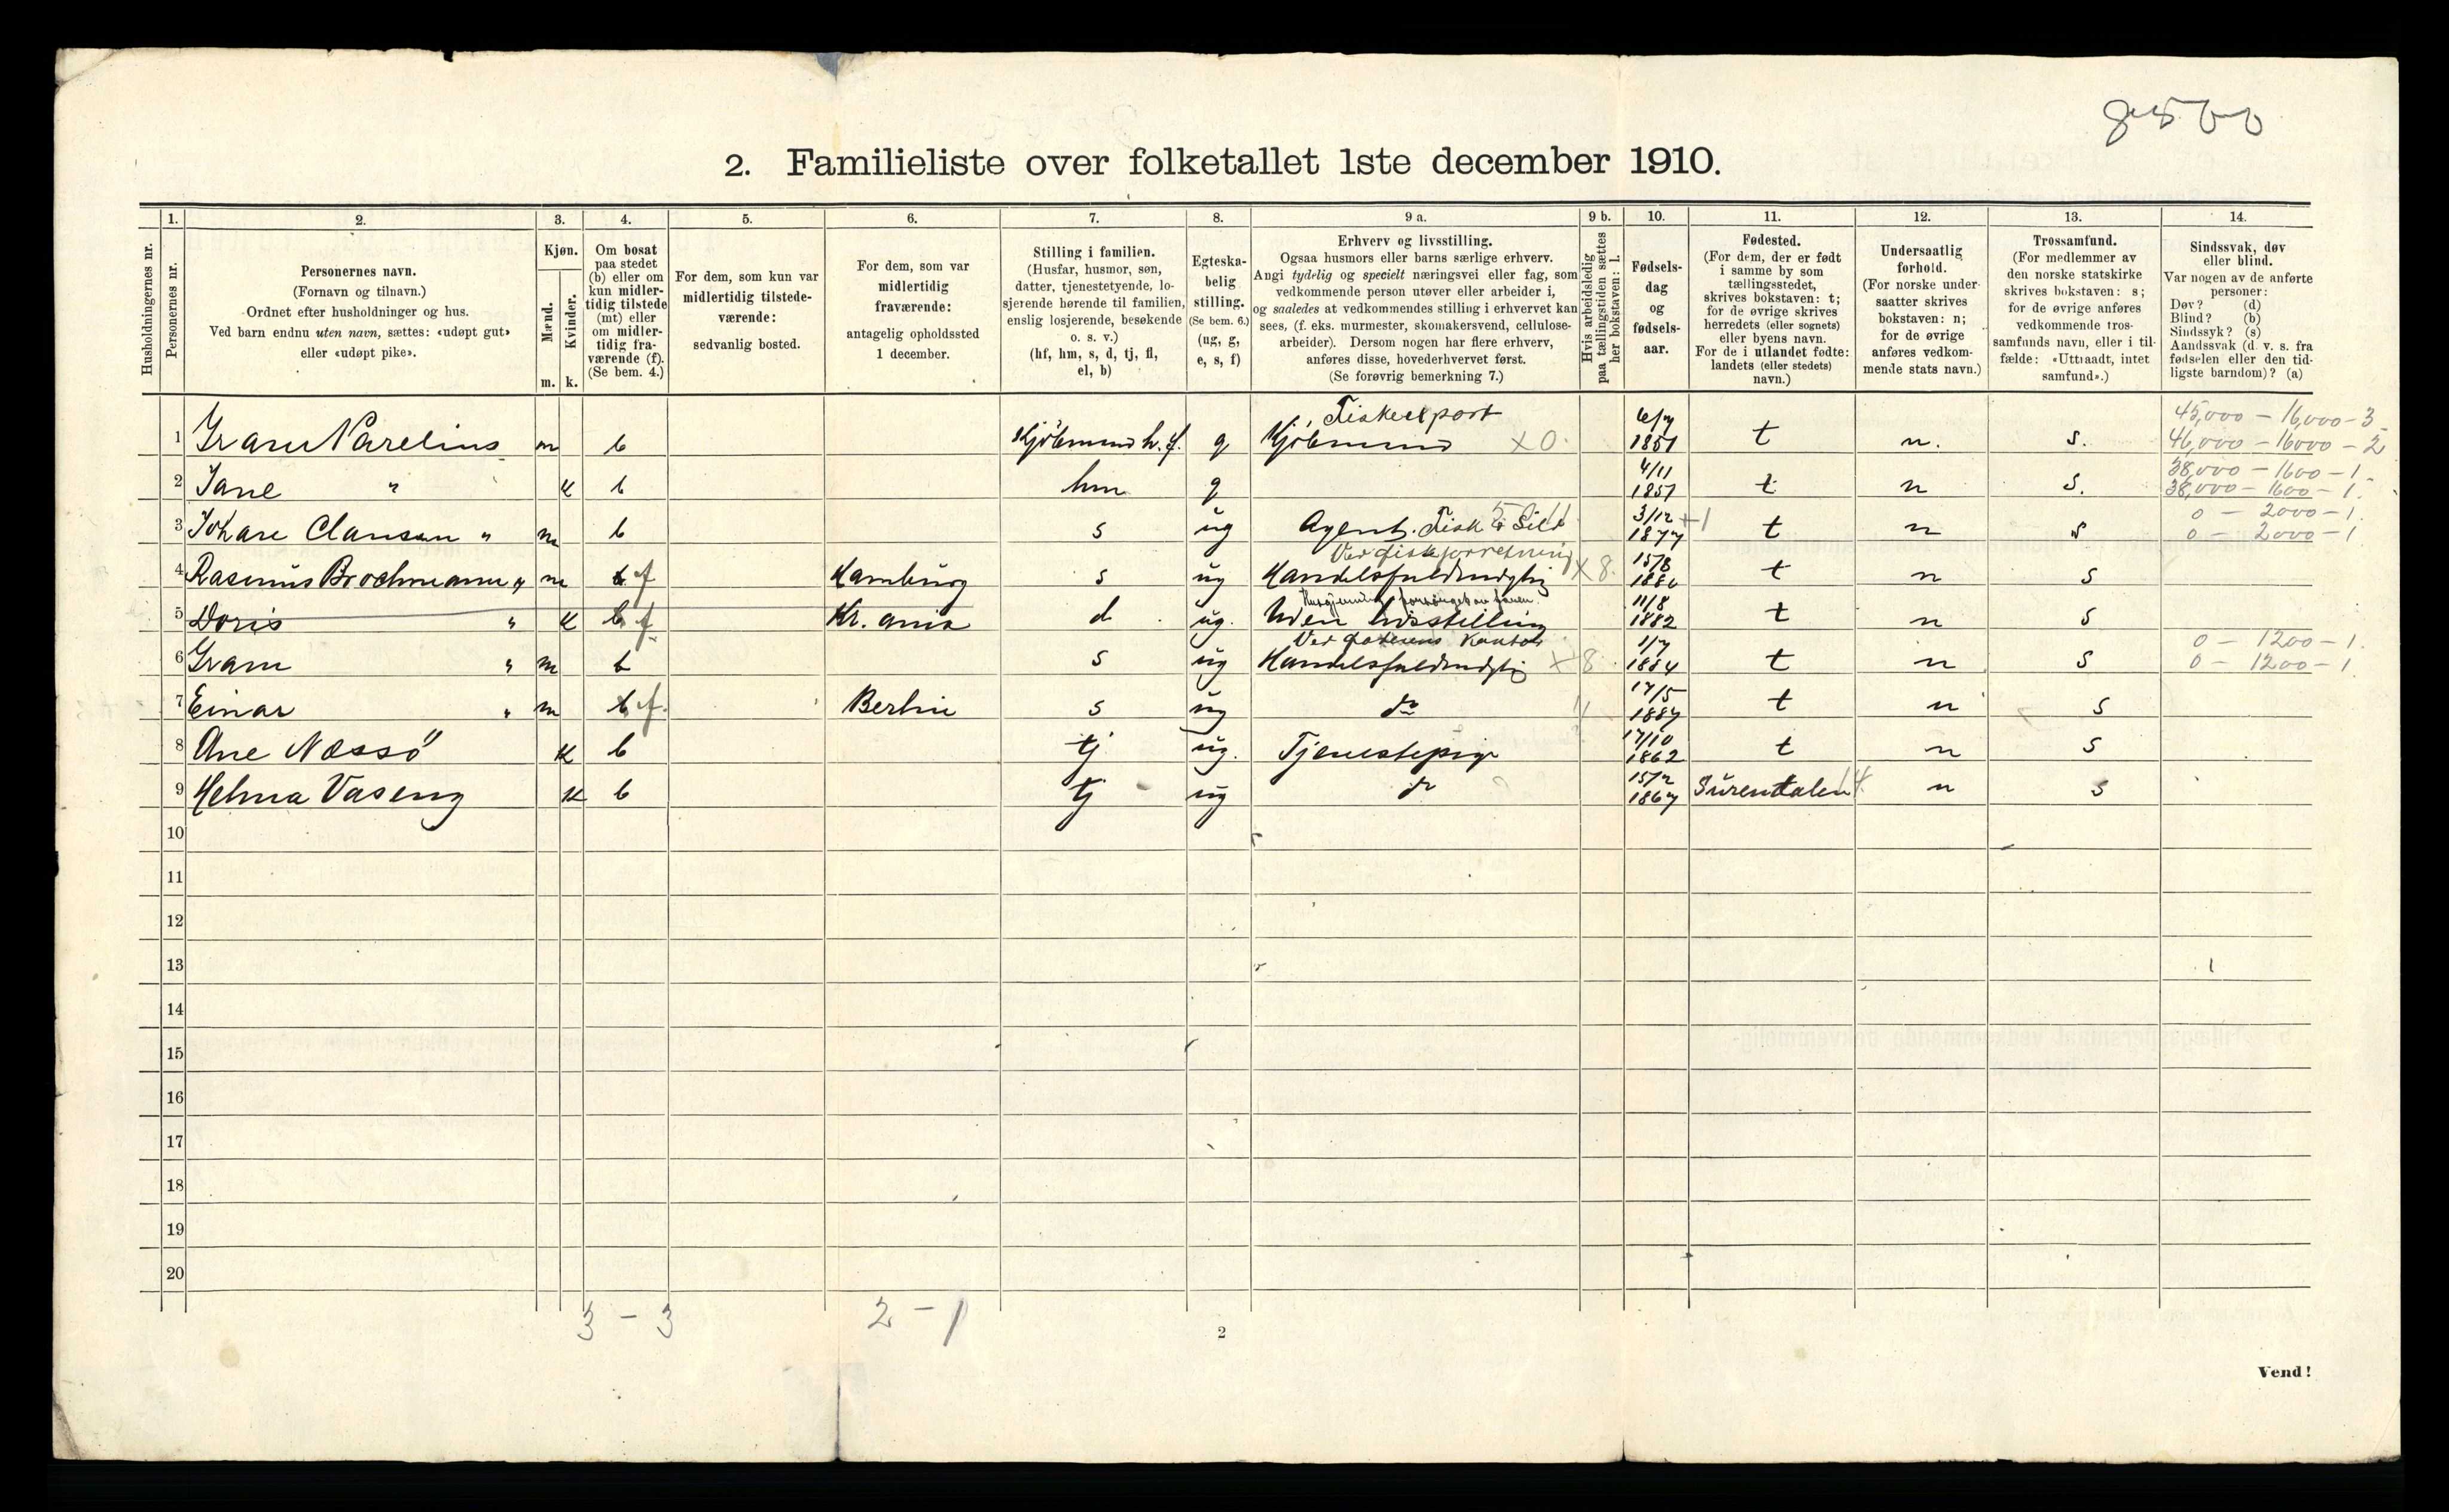 8500
2. Familieliste over folketallet 1ste december 1910.
1. 2. 3. 4. 5. 6. 7. 8. 9 a. 9 b. 10. 11. 12. 13. 14.
Husholdningernes nr.
Personernes nr.
Personernes navn.
(Fornavn og tilnavn.)
Ordnet efter husholdninger og hus.
Ved barn endnu uten navn, sættes: «udøpt gut»
eller «udøpt pike».
Kjøn.
Mænd.
Kvinder.
m. k.
Om bosat
paa stedet
(b) eller om
kun midler-
tidig tilstede
(mt) eller
om midler-
tidig fra-
værende (f).
(Se bem. 4.)
For dem, som kun var
midlertidig tilstede-
værende:
sedvanlig bosted.
For dem, som var
midlertidig
fraværende:
antagelig opholdssted
1 december.
Stilling i familien.
(Husfar, husmor, søn,
datter, tjenestetyende, lo-
sjerende hørende til familien,
enslig losjerende, besøkende
o. s. v.)
(hf, hm, s, d, tj, fl,
el, b)
Egteska-
belig
stilling.
(Se bem. 6.)
(ug, g,
e, s, f)
Erhverv og livsstilling.
Ogsaa husmors eller barns særlige erhverv.
Angi tydelig og specielt næringsvei eller fag, som
vedkommende person utøver eller arbeider i,
og saaledes at vedkommendes stilling i erhvervet kan
sees, (f. eks. murmester, skomakersvend, cellulose-
arbeider). Dersom nogen har flere erhverv,
anføres disse, hovederhvervet først.
(Se forøvrig bemerkning 7.)
Hvis arbeidsledig
paa tællingstiden sættes
her bokstaven: l.
Fødsels-
dag
og
fødsels-
aar.
Fødested.
(For dem, der er født
i samme by som
tællingsstedet,
skrives bokstaven: t;
for de øvrige skrives
herredets (eller sognets)
eller byens navn.
For de i utlandet fødte:
landets (eller stedets)
navn.)
Undersaatlig
forhold.
(For norske under-
saatter skrives
bokstaven: n;
for de øvrige
anføres vedkom-
mende stats navn.)
Trossamfund.
(For medlemmer av
den norske statskirke
skrives bokstaven: s;
for de øvrige anføres
vedkommende tros-
samfunds navn, eller i til-
fælde: «Uttraadt, intet
samfund».)
Sindssvak, døv
eller blind.
Var nogen av de anførte
personer:
Døv? (d)
Blind? (b)
Sindssyk? (s)
Aandssvak (d. v. s. fra
fødselen eller den tid-
ligste barndom)? (a)
Fiskeexport 6/7 45,000 – 16,000 – 3
1 Gram Parelius m b Kjöbmand h.f. g Kjöbmand x0 1851 t n. s. 46,000 – 16000 – 2
4/11 38,000 – 1600 – 1
2 Jane " k b hm g 1851 t n s. 38,000 – 1600 – 1.
3/12 0 – 2000 – 1.
3 Johare Clausen " m b s ug Agent. Fisk & Sild 1877 t n s 0 – 2000 – 1.
Ved fiskforretning 15/8
4 Rasmus Brochmann " m b f Hamburg s ug Handelsfuldmægtig x 8. 1880 t n s
11/8
5 Doris " k b f Kr. ania d ug. Uden livsstilling 1882 t n s
Ved faderens Kontor 1/7 0 – 1200 – 1.
6 Gram " m b s ug Handelsfuldmægtig x 8. 1884 t n s 0 – 1200 – 1
17/5
7 Einar " m b f. Berlin s ug do 1887 t n s
17/10
8 Ane Næssö k b tj ug. Tjenestepige 1862 t n s
15/2
9 Helma Vaseng k b tj ug do 1867 Surendalen n s
10
11
12
13
14
15
16
17
18
19
20
3 – 3 2 – 1
2
Vend!